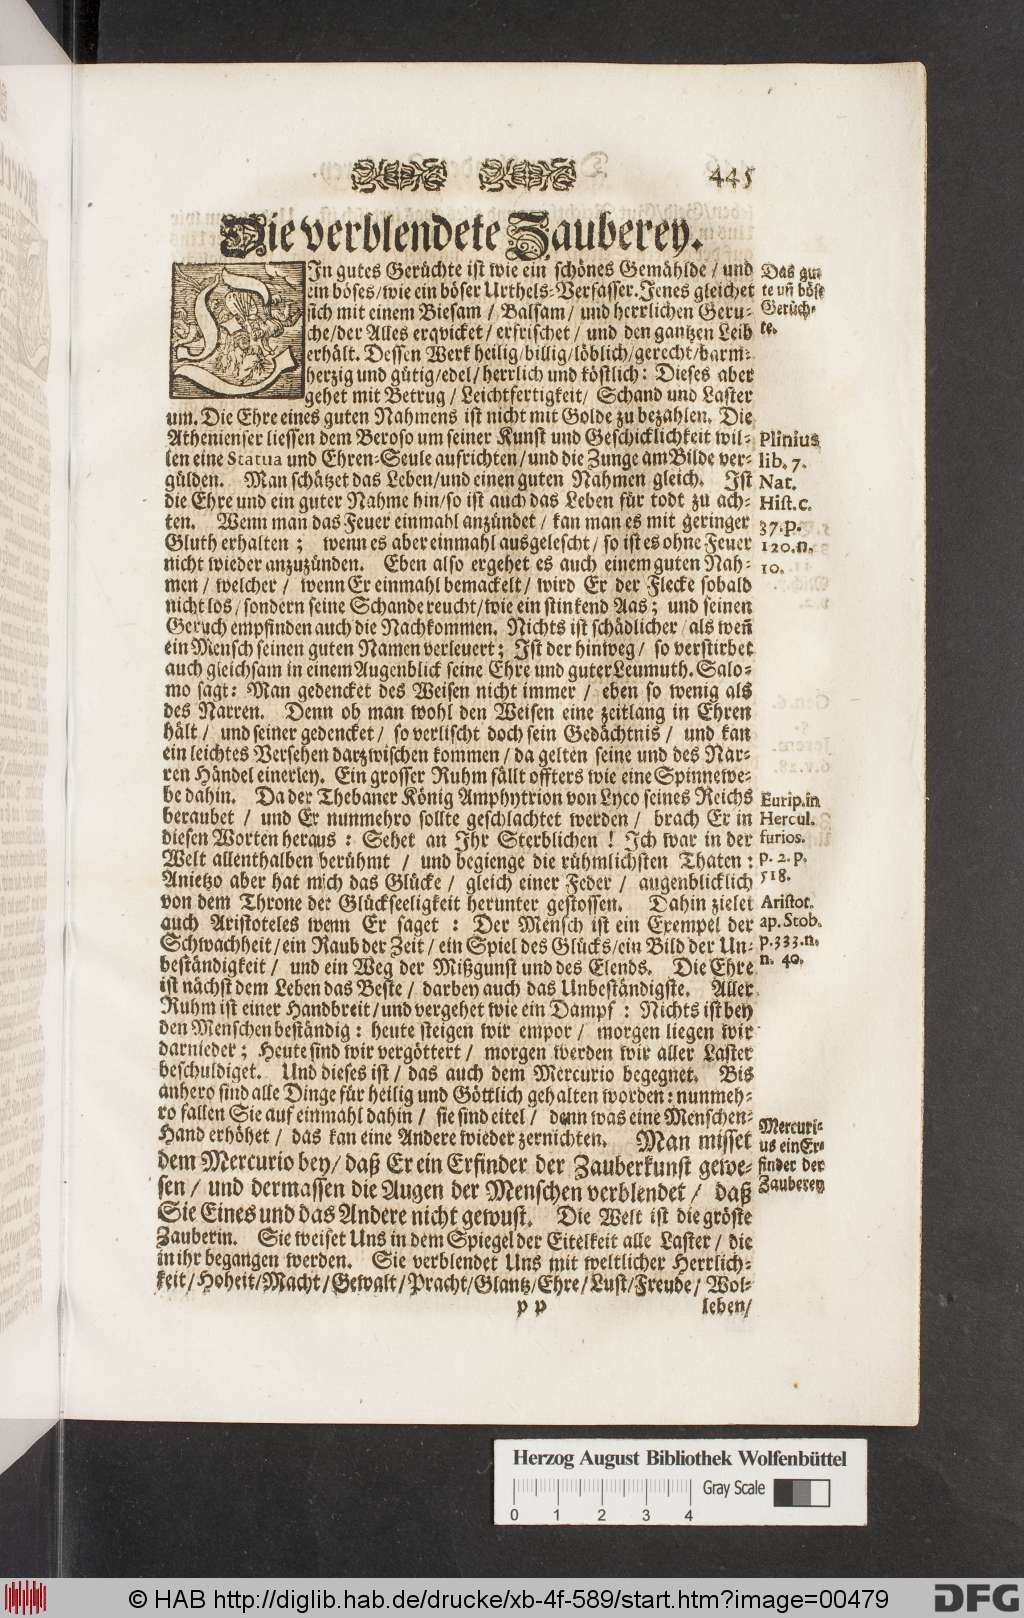 445
Die verblendete Zauberey.
EIn gutes Gerüchte ist wie ein schönes Gemählde / und
ein böses / wie ein böser Urthels-Verfasser. Jenes gleichet
sich mit einem Biesam / Balsam / und herrlichen Geru-
che / der Alles erqvicket / erfrischet / und den gantzen Leib
erhält. Dessen Werk heilig / billig / löblich / gerecht / barm-
herzig und gütig / edel / herrlich und köstlich: Dieses aber
gehet mit Betrug / Leichtfertigkeit / Schand und Laster
um. Die Ehre eines guten Nahmens ist nicht mit Golde zu bezahlen. Die
Athenienser liessen dem Beroso um seiner Kunst und Geschicklichkeit wil-
len eine Statua und Ehren-Seule aufrichten / und die Zunge am Bilde ver-
gülden. Man schätzet das Leben / und einen guten Nahmen gleich. Ist
die Ehre und ein guter Nahme hin / so ist auch das Leben für todt zu ach-
ten. Wenn man das Feuer einmahl anzündet / kan man es mit geringer
Gluth erhalten ; wenn es aber einmahl ausgelescht / so ist es ohne Feuer
nicht wieder anzuzünden. Eben also ergehet es auch einem guten Nah-
men / welcher / wenn Er einmahl bemackelt / wird Er der Flecke sobald
nicht los / sondern seine Schande reucht / wie ein stinkend Aas ; und seinen
Geruch empfinden auch die Nachkommen. Nichts ist schädlicher / als weñ
ein Mensch seinen guten Namen verleuert ; Ist der hinweg / so verstirbet
auch gleichsam in einem Augenblick seine Ehre und guter Leumuth. Salo-
mo sagt: Man gedencket des Weisen nicht immer / eben so wenig als
des Narren. Denn ob man wohl den Weisen eine zeitlang in Ehren
hält / und seiner gedencket / so verlischt doch sein Gedächtnis / und kan
ein leichtes Versehen darzwischen kommen / da gelten seine und des Nar-
ren Händel einerley. Ein grosser Ruhm fällt offters wie eine Spinnewe-
be dahin. Da der Thebaner König Amphytrion von Lyco seines Reichs
beraubet / und Er nunmehro sollte geschlachtet werden / brach Er in
diesen Worten heraus : Sehet an Ihr Sterblichen ! Ich war in der
Welt allenthalben berühmt / und begienge die rühmlichsten Thaten :
Anietzo aber hat mich das Glücke / gleich einer Feder / augenblicklich
von dem Throne der Glückseeligkeit herunter gestossen. Dahin zielet
auch Aristoteles wenn Er saget : Der Mensch ist ein Exempel der
Schwachheit / ein Raub der Zeit / ein Spiel des Glücks / ein Bild der Un-
beständigkeit / und ein Weg der Mißgunst und des Elends. Die Ehre
ist nächst dem Leben das Beste / darbey auch das Unbeständigste. Aller
Ruhm ist einer Handbreit / und vergehet wie ein Dampf : Nichts ist bey
den Menschen beständig : heute steigen wir empor / morgen liegen wir
darnieder ; Heute sind wir vergöttert / morgen werden wir aller Laster
beschuldiget. Und dieses ist / das auch dem Mercurio begegnet. Bis
anhero sind alle Dinge für heilig und Göttlich gehalten worden: nunmeh-
ro fallen Sie auf einmahl dahin / sie sind eitel / denn was eine Menschen-
Hand erhöhet / das kan eine Andere wieder zernichten. Man misset
dem Mercurio bey / daß Er ein Erfinder der Zauberkunst gewe-
sen / und dermassen die Augen der Menschen verblendet / daß
Sie Eines und das Andere nicht gewust. Die Welt ist die gröste
Zauberin. Sie weiset Uns in dem Spiegel der Eitelkeit alle Laster / die
in ihr begangen werden. Sie verblendet Uns mit weltlicher Herrlich-
keit / Hoheit / Macht / Gewalt / Pracht / Glantz / Ehre / Lust / Freude / Wol-
p p leben /
Das gu-
te uñ böse
Gerüch-
te.
Plinius
lib. 7.
Nat.
Hist. c.
37. p.
120. n.
10.
Eurip. in
Hercul.
furios.
p. 2. p.
518.
Aristot.
ap. Stob.
p. 333. n.
n. 40.
Mercuri-
us ein Er-
finder der
Zauberey
Herzog August Bibliothek Wolfenbüttel
Gray Scale
0 1 2 3 4
© HAB http://diglib.hab.de/drucke/xb-4f-589/start.htm?image=00479
DFG